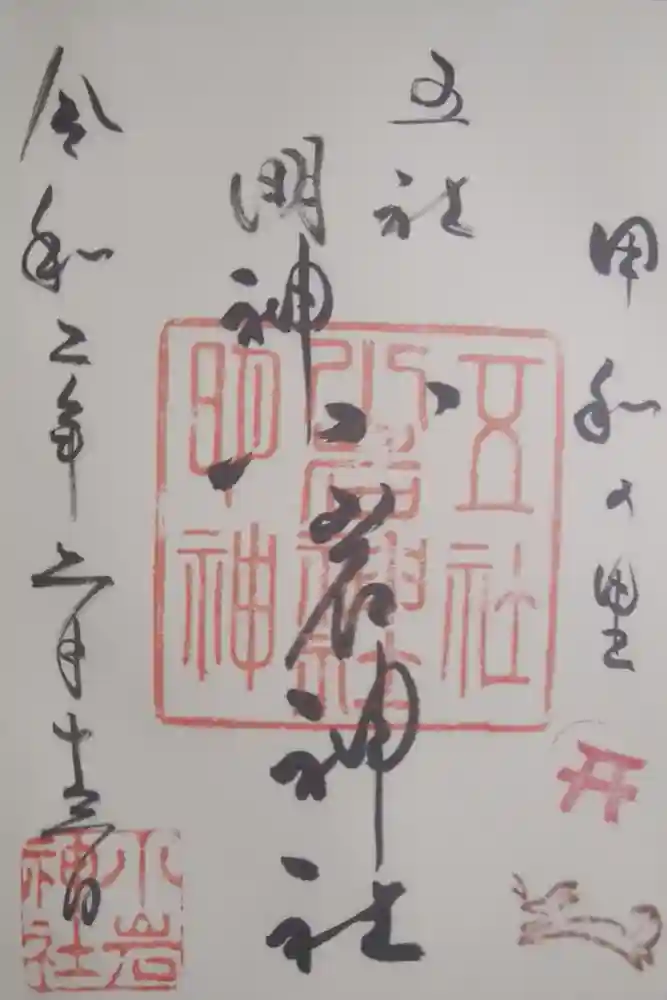 甲和の里
五社
明神
小岩神社
五社
小岩神社
明神
令和二年
小岩
神社